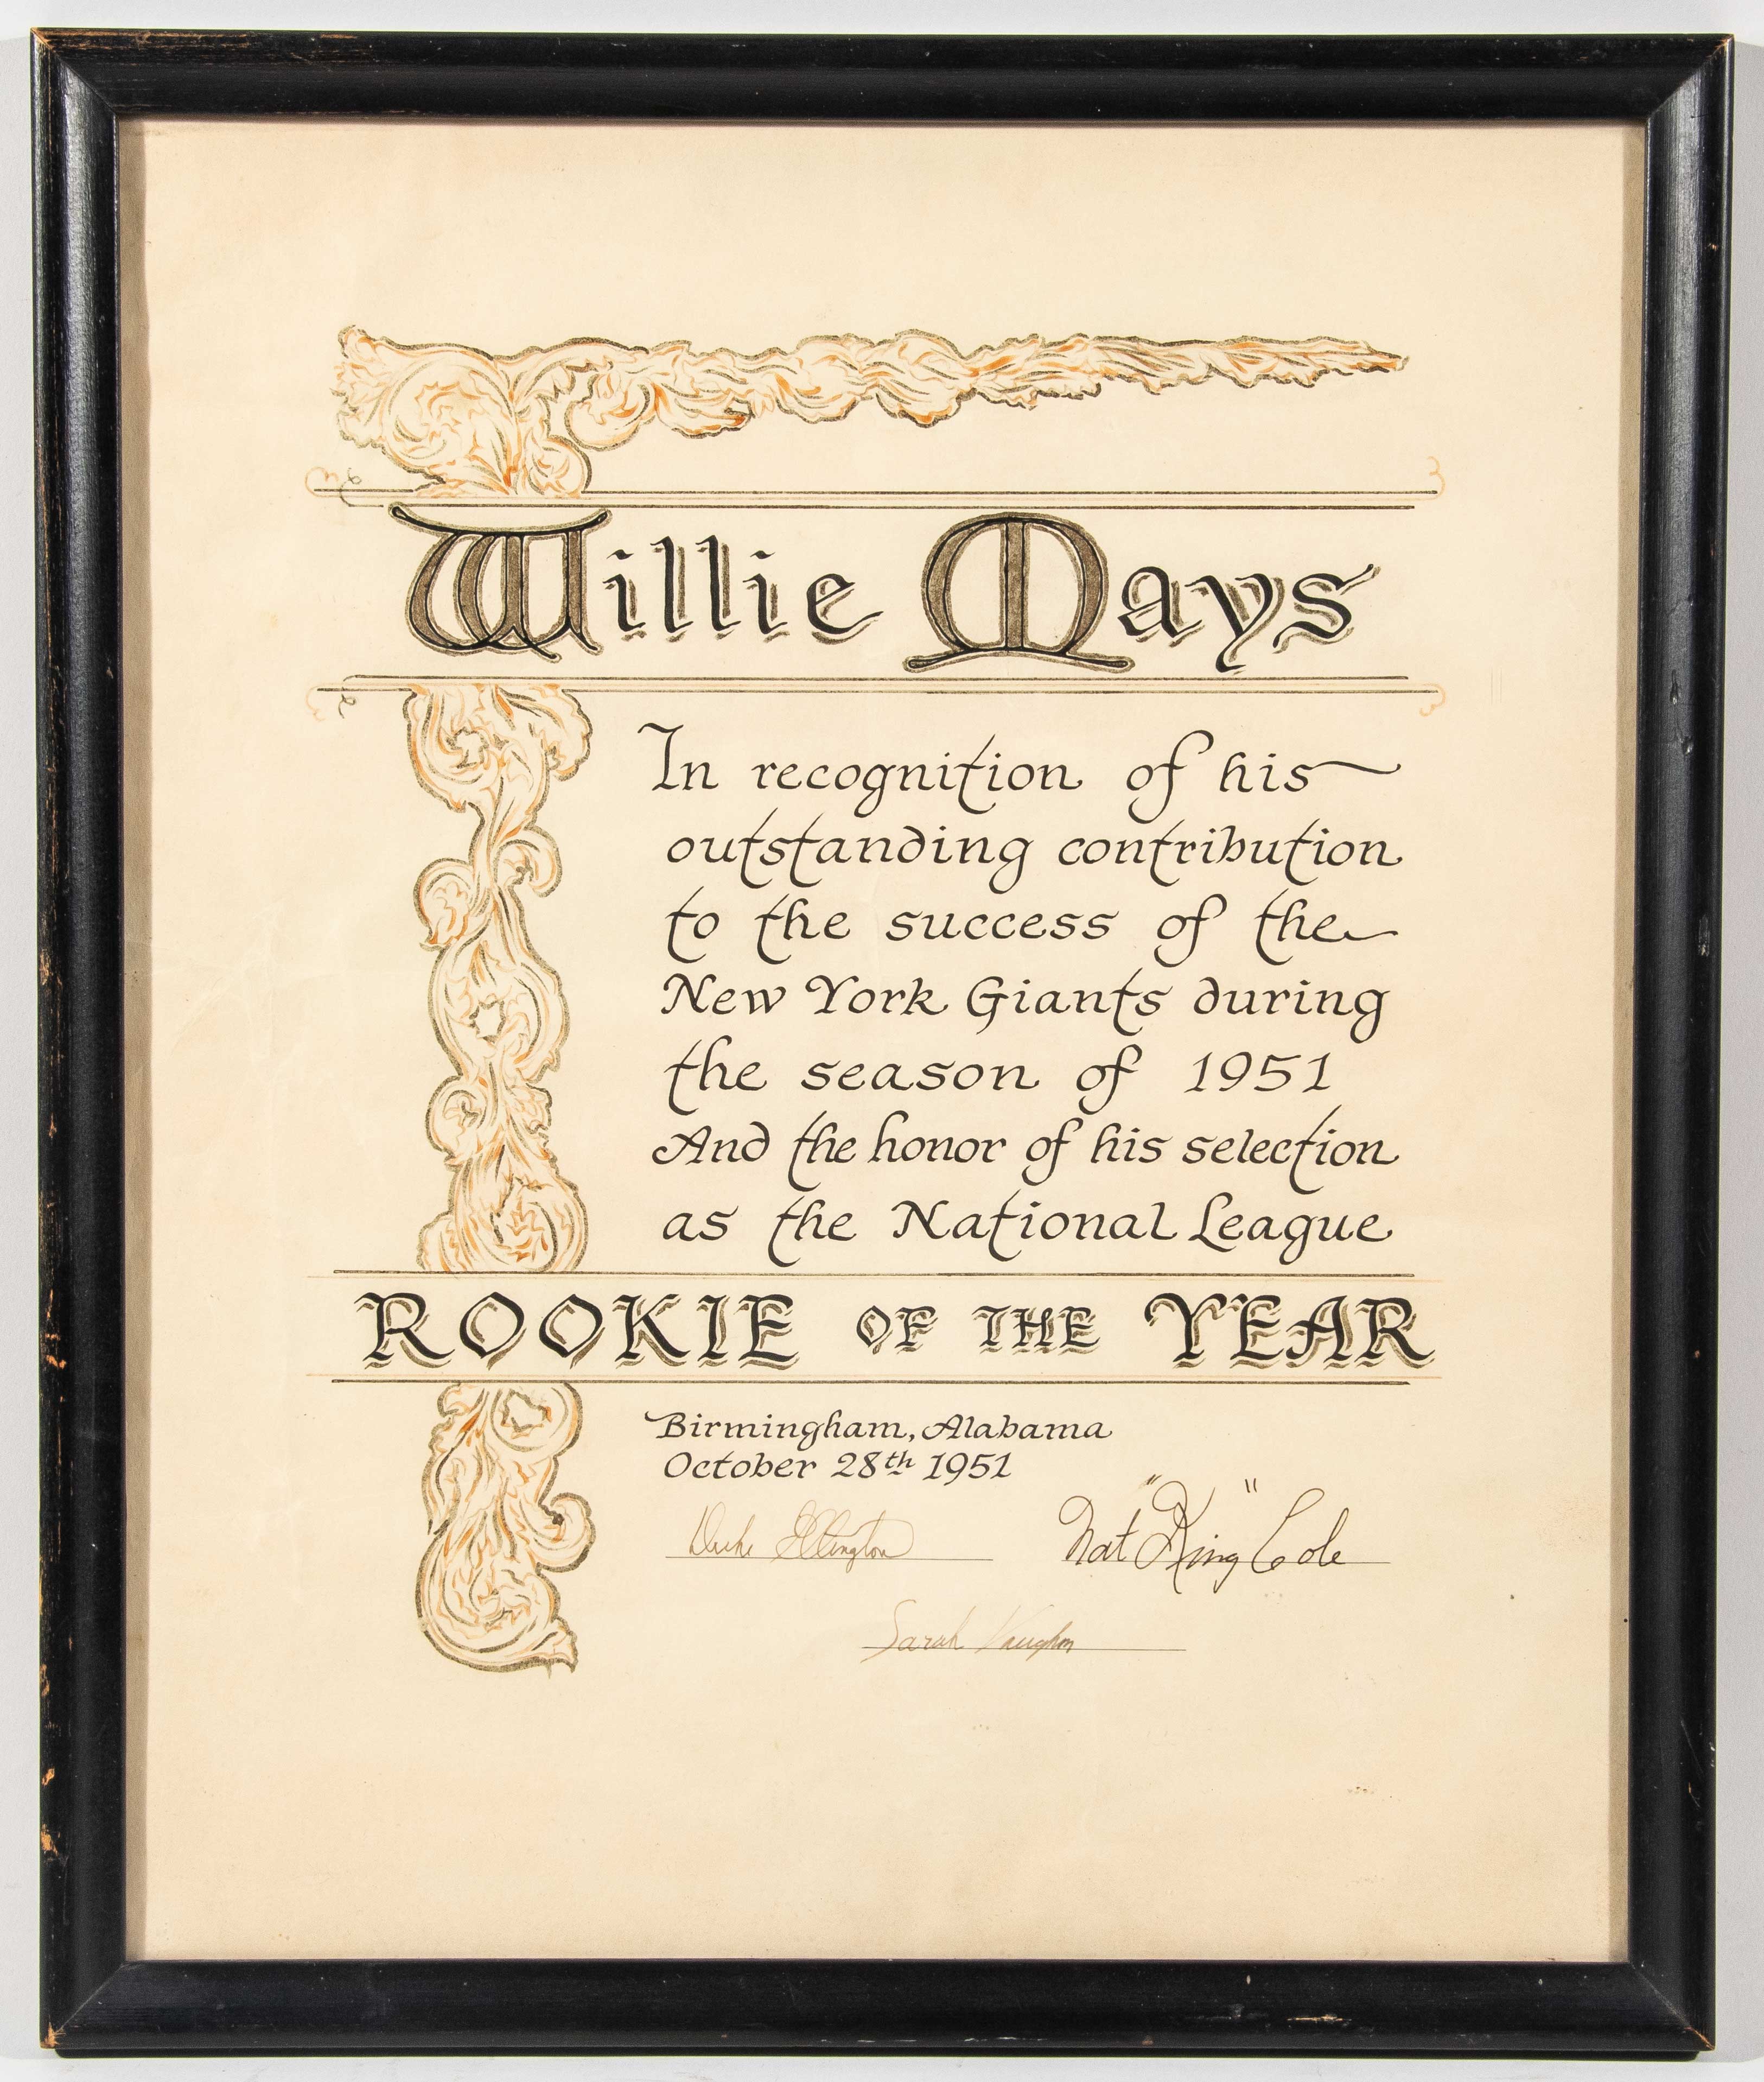 Willie Mays
In recognition of his
outstanding contribution
to the success of the
New York Giants during
the season of 1951
And the honor of his selection
as the National League
ROOKIE OF THE YEAR
Birmingham, Alabama
October 28th 1951
Duke Ellington Nat "King" Cole
Sarah Vaughn